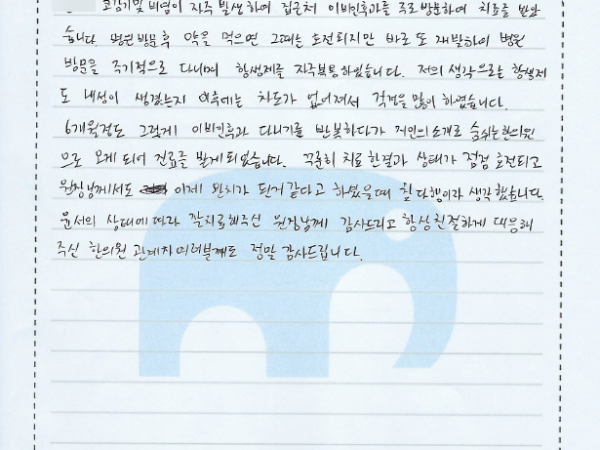 코감기 및 비염이 자주 발생하여 집근처 이비인후과를 주로 방문하여 치료를 받았
습니다. 병원 방문 후 약을 먹으면 그때는 호전되지만 바로 또 재발하여 병원
방문을 주기적으로 다니며 항생제를 자주 복용하였습니다. 저의 생각으로는 항생제
도 내성이 생겼는지 이후에는 차도가 없어져서 걱정을 많이 하였습니다.
6개월정도 그렇게 이비인후과 다니기를 반복하다가 지인의 소개로 숨쉬는한의원
으로 오게 되어 진료를 받게 되었습니다. 꾸준히 치료한결과 상태가 점점 호전되고
원장님께서도 이제 완치가 된거 같다고 하셨을때 참 다행이라 생각했습니다.
윤서의 상태에 따라 잘치료해주신 원장님께 감사드리고 항상 친절하게 대응해
주신 한의원 관계자 여러분께도 정말 감사드립니다.